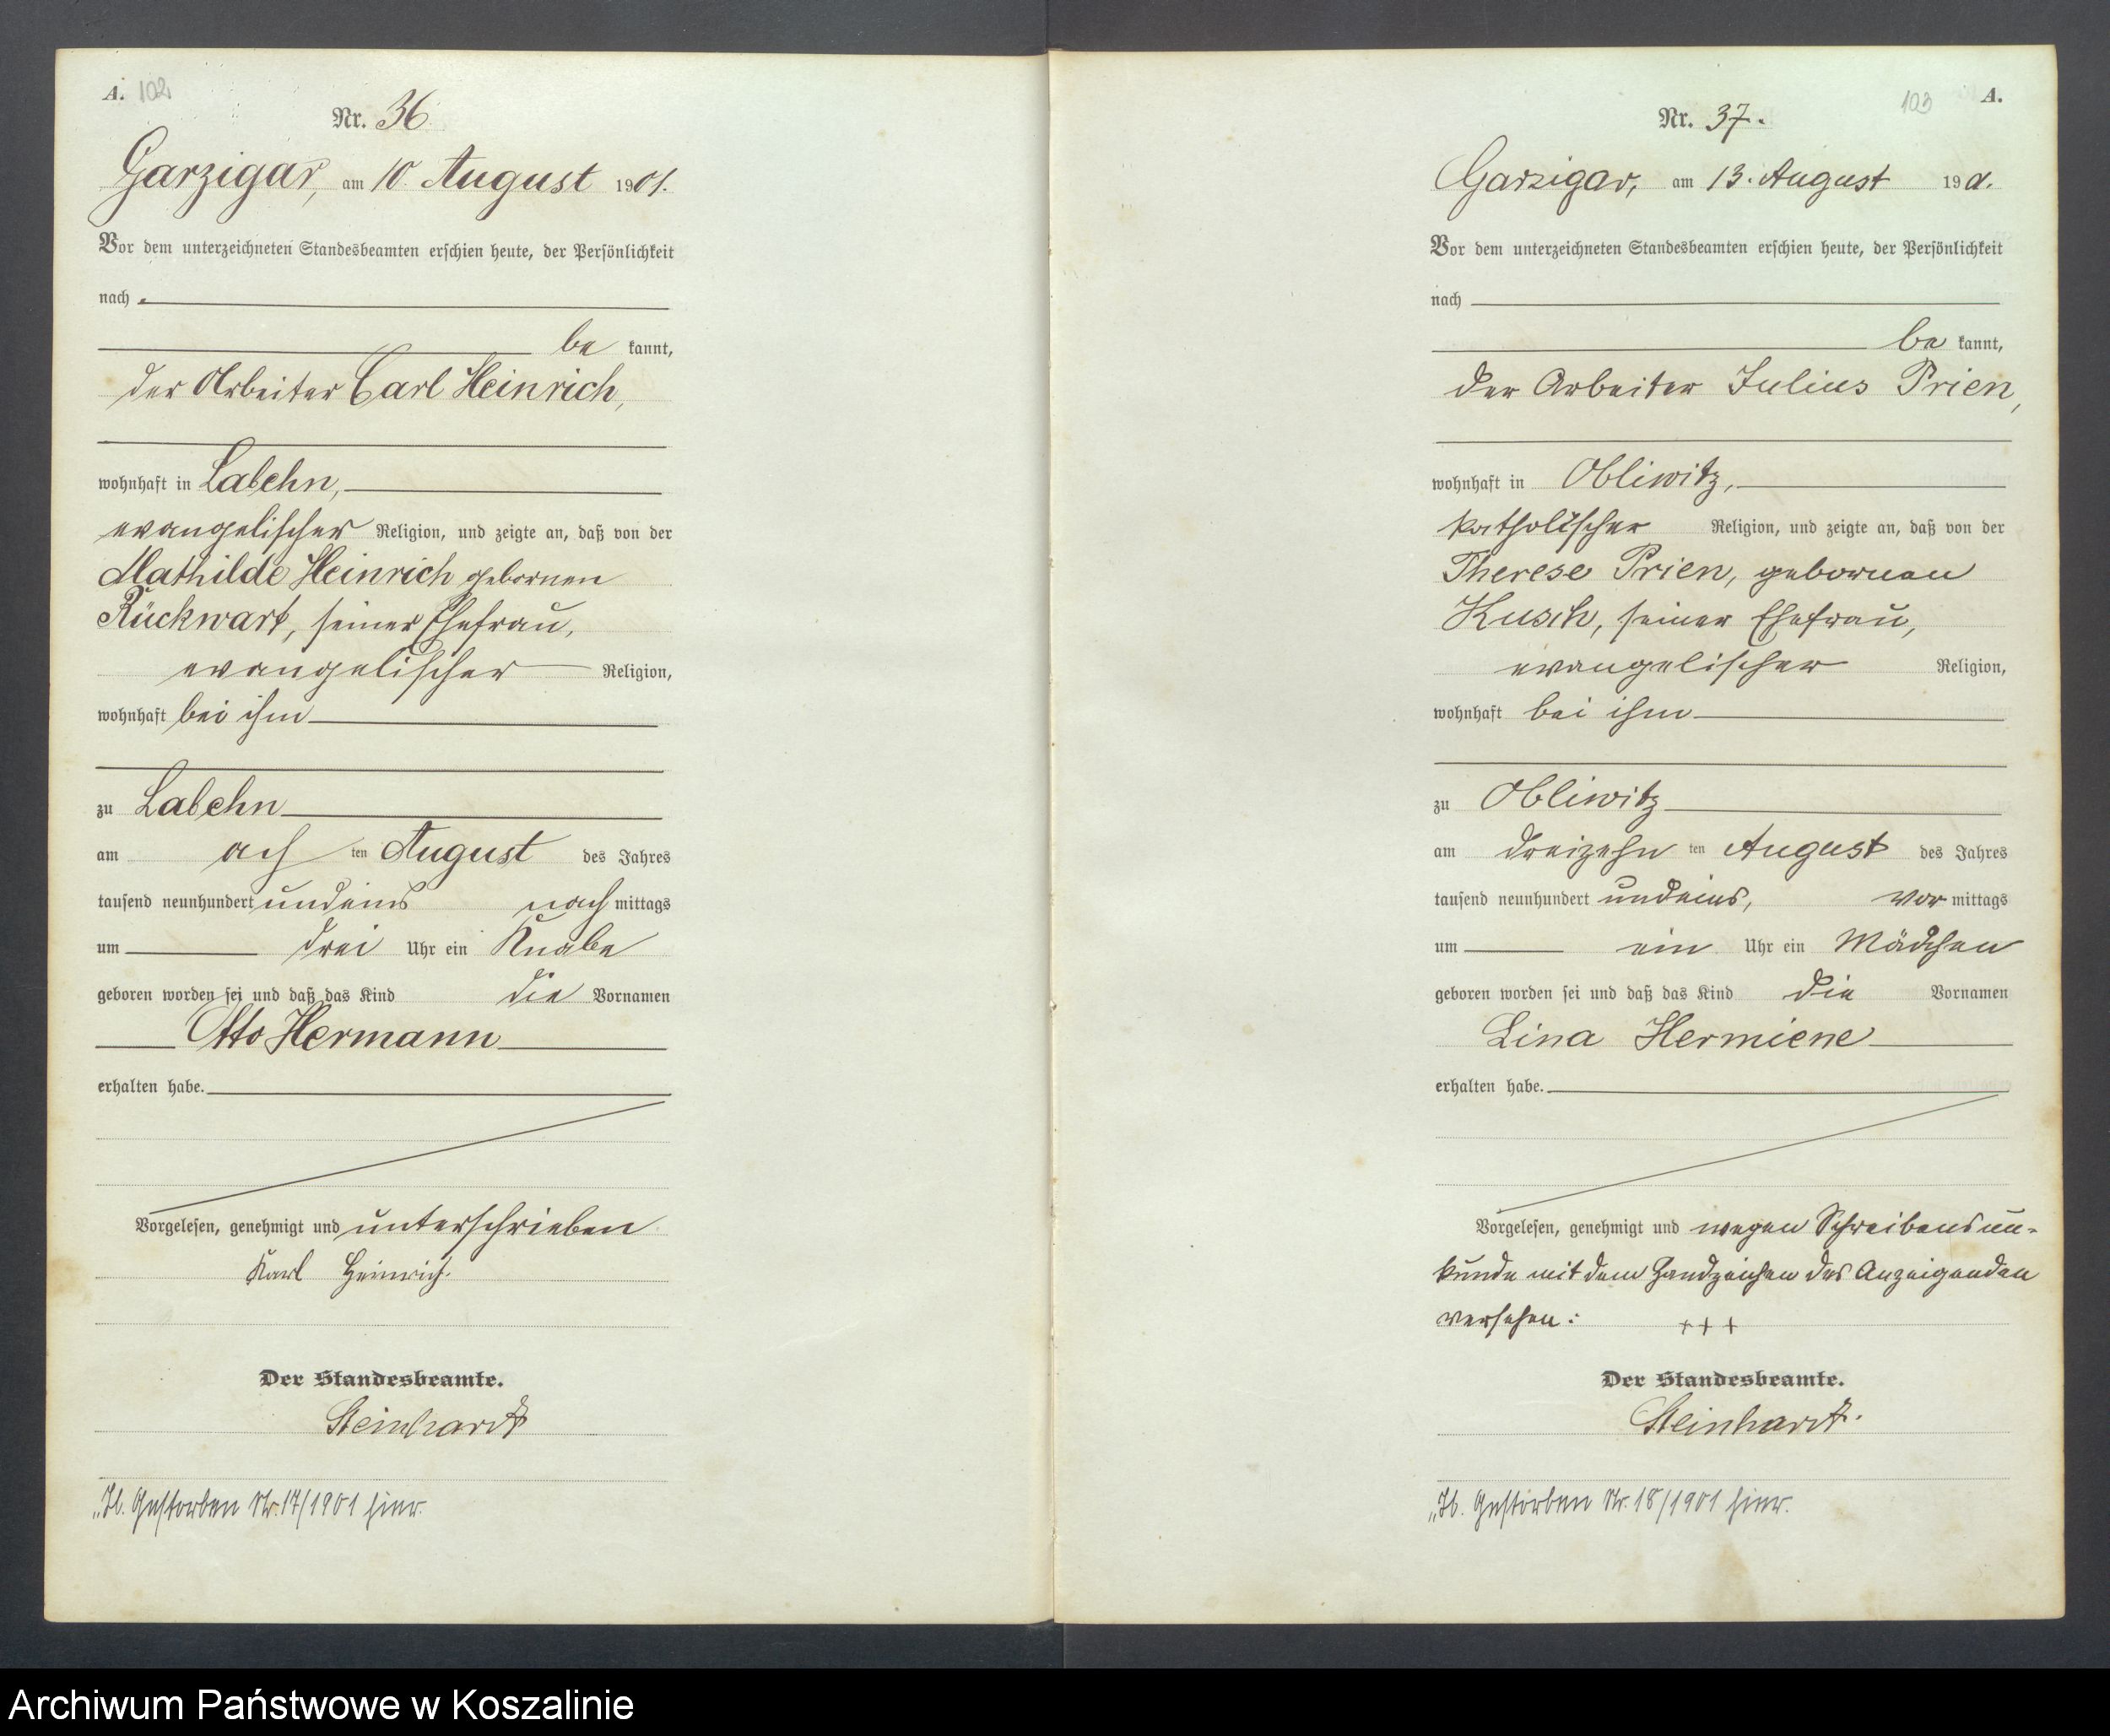 A. 102
Nr. 36
Garzigar, am 10. August 1901.
Vor dem unterzeichneten Standesbeamten erschien heute, der Persönlichkeit
nach
be kannt,
der Arbeiter Carl Heinrich,
wohnhaft in Labehn,
evangelischer Religion, und zeigte an, daß von der
Mathilde Heinrich gebornen
Rückwart, seiner Ehefrau,
evangelischer Religion,
wohnhaft bei ihm
zu Labehn
am ach ten August des Jahres
tausend neunhundert undeins nach mittags
um drei Uhr ein Knabe
geboren worden sei und daß das Kind die Vornamen
Otto Hermann
erhalten habe.
Vorgelesen, genehmigt und unterschrieben
Karl Heinrich.
Der Standesbeamte.
Steinhardt
Gestorben Nr. 17/1901 hier.
103 A.
Nr. 37.
Garzigar, am 13. August 1901.
Vor dem unterzeichneten Standesbeamten erschien heute, der Persönlichkeit
nach
be kannt,
der Arbeiter Julius Prien,
wohnhaft in Obliwitz,
katholischer Religion, und zeigte an, daß von der
Therese Prien, gebornen
Kusch, seiner Ehefrau,
evangelischer Religion,
wohnhaft bei ihm
zu Obliwitz
am dreizehn ten August des Jahres
tausend neunhundert undeins, vor mittags
um ein Uhr ein Mädchen
geboren worden sei und daß das Kind die Vornamen
Lina Hermiene
erhalten habe.
Vorgelesen, genehmigt und wegen Schreibensun-
kunde mit dem Handzeichen des Anzeigenden
versehen: +++
Der Standesbeamte.
Steinhardt.
Gestorben Nr. 18/1901 hier.
Archiwum Państwowe w Koszalinie